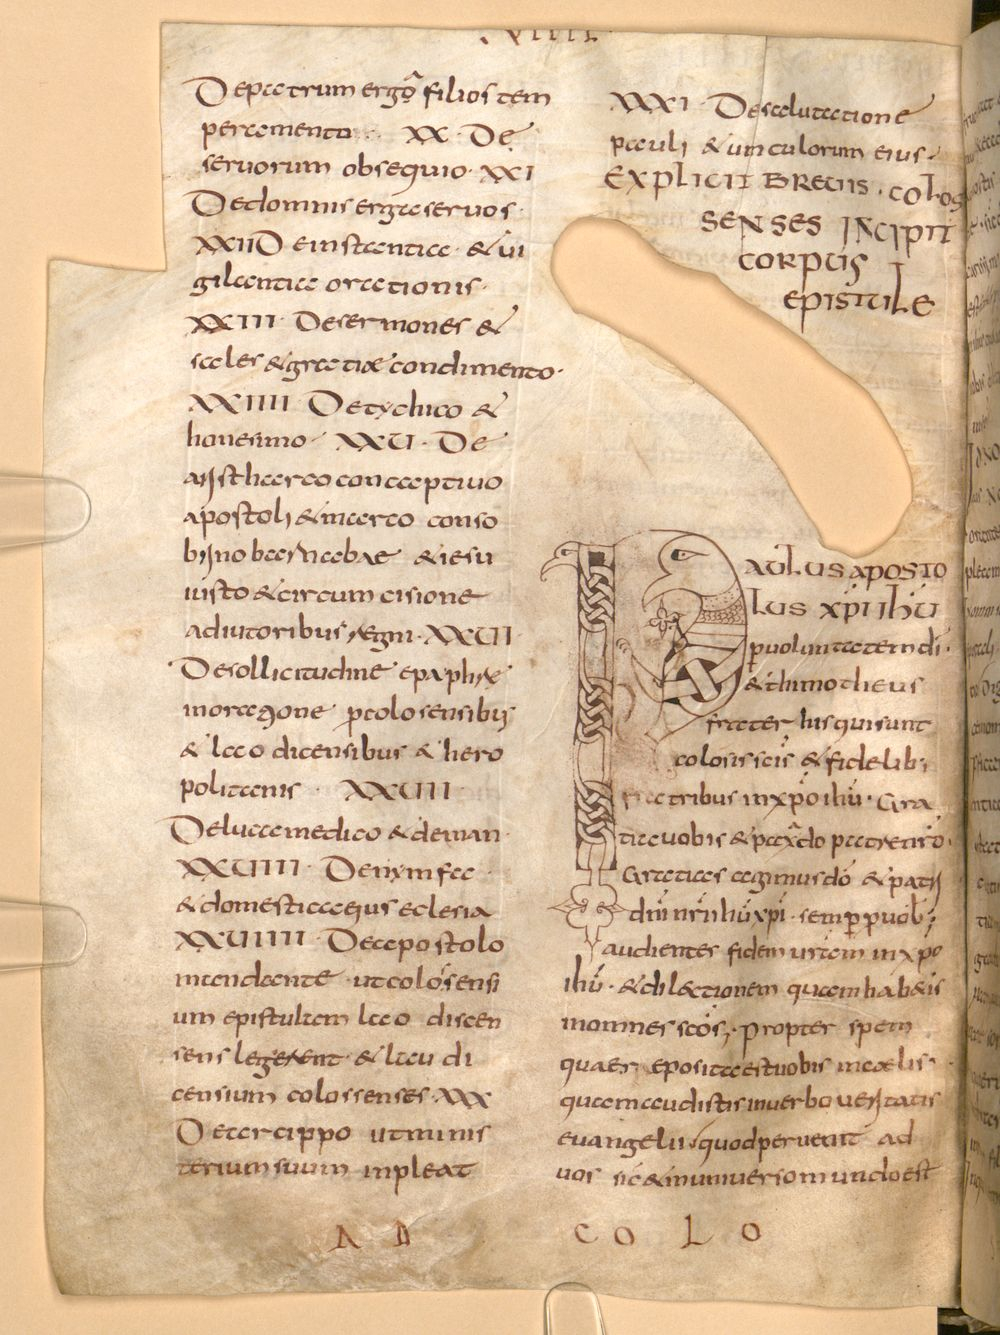 De patrum ergo filios tem
peramento · XX · De
seruorum obsequio · XXI
De dominis erga seruos ·
XXII De instantiae · & ui
gilantiae orationis ·
XXIII · De sermones &
sales & gratiae condimento ·
XXIIII De tychico &
honesimo · XXU · De
aristharco concaptiuo
apostoli & marco conso
brino barnabae & iesu
iusto & circumcisione
adiutoribus regni · XXUI
De sollicitudine epaphrae
in oratione p colosensibus
& lao dicensibus & hero
politanis · XXUII
De luca medico & deman
XXUIII · De nymfae
& domestica eius eclesia
XXUIIII · De apostolo
mandante · ut colosensi
um epistulam lao dicen
sens legerent · & lau di
censium colossenses · XXX
De arcippo ut minis
terium suum inpleat
XXXI · De salutatione
pauli & uinculorum eius ·
EXPLICIT BREUIS · COLOS
SENSES INCIPIT
CORPUS
EPISTULE
PAULUS APOSTO
LUS XPI IHU
p uoluntatem di ·
& thimotheus
frater his qui sunt
colosis scis & fidelibus
fratribus in xpo ihu · Gra
tia uobis & pax a do patre nro ·
Gratias agimus do & patri
dni nri ihu xpi · semper p uobis
audientes fidem uestram in xpo
ihu · & dilectionem quam habetis
in omnes scos · propter spem
quae reposita est uobis in caelis ·
quam audistis in uerbo ueritatis
euangelii · quod peruenit ad
uos sic & in uniuerso mundo est
AD COLO